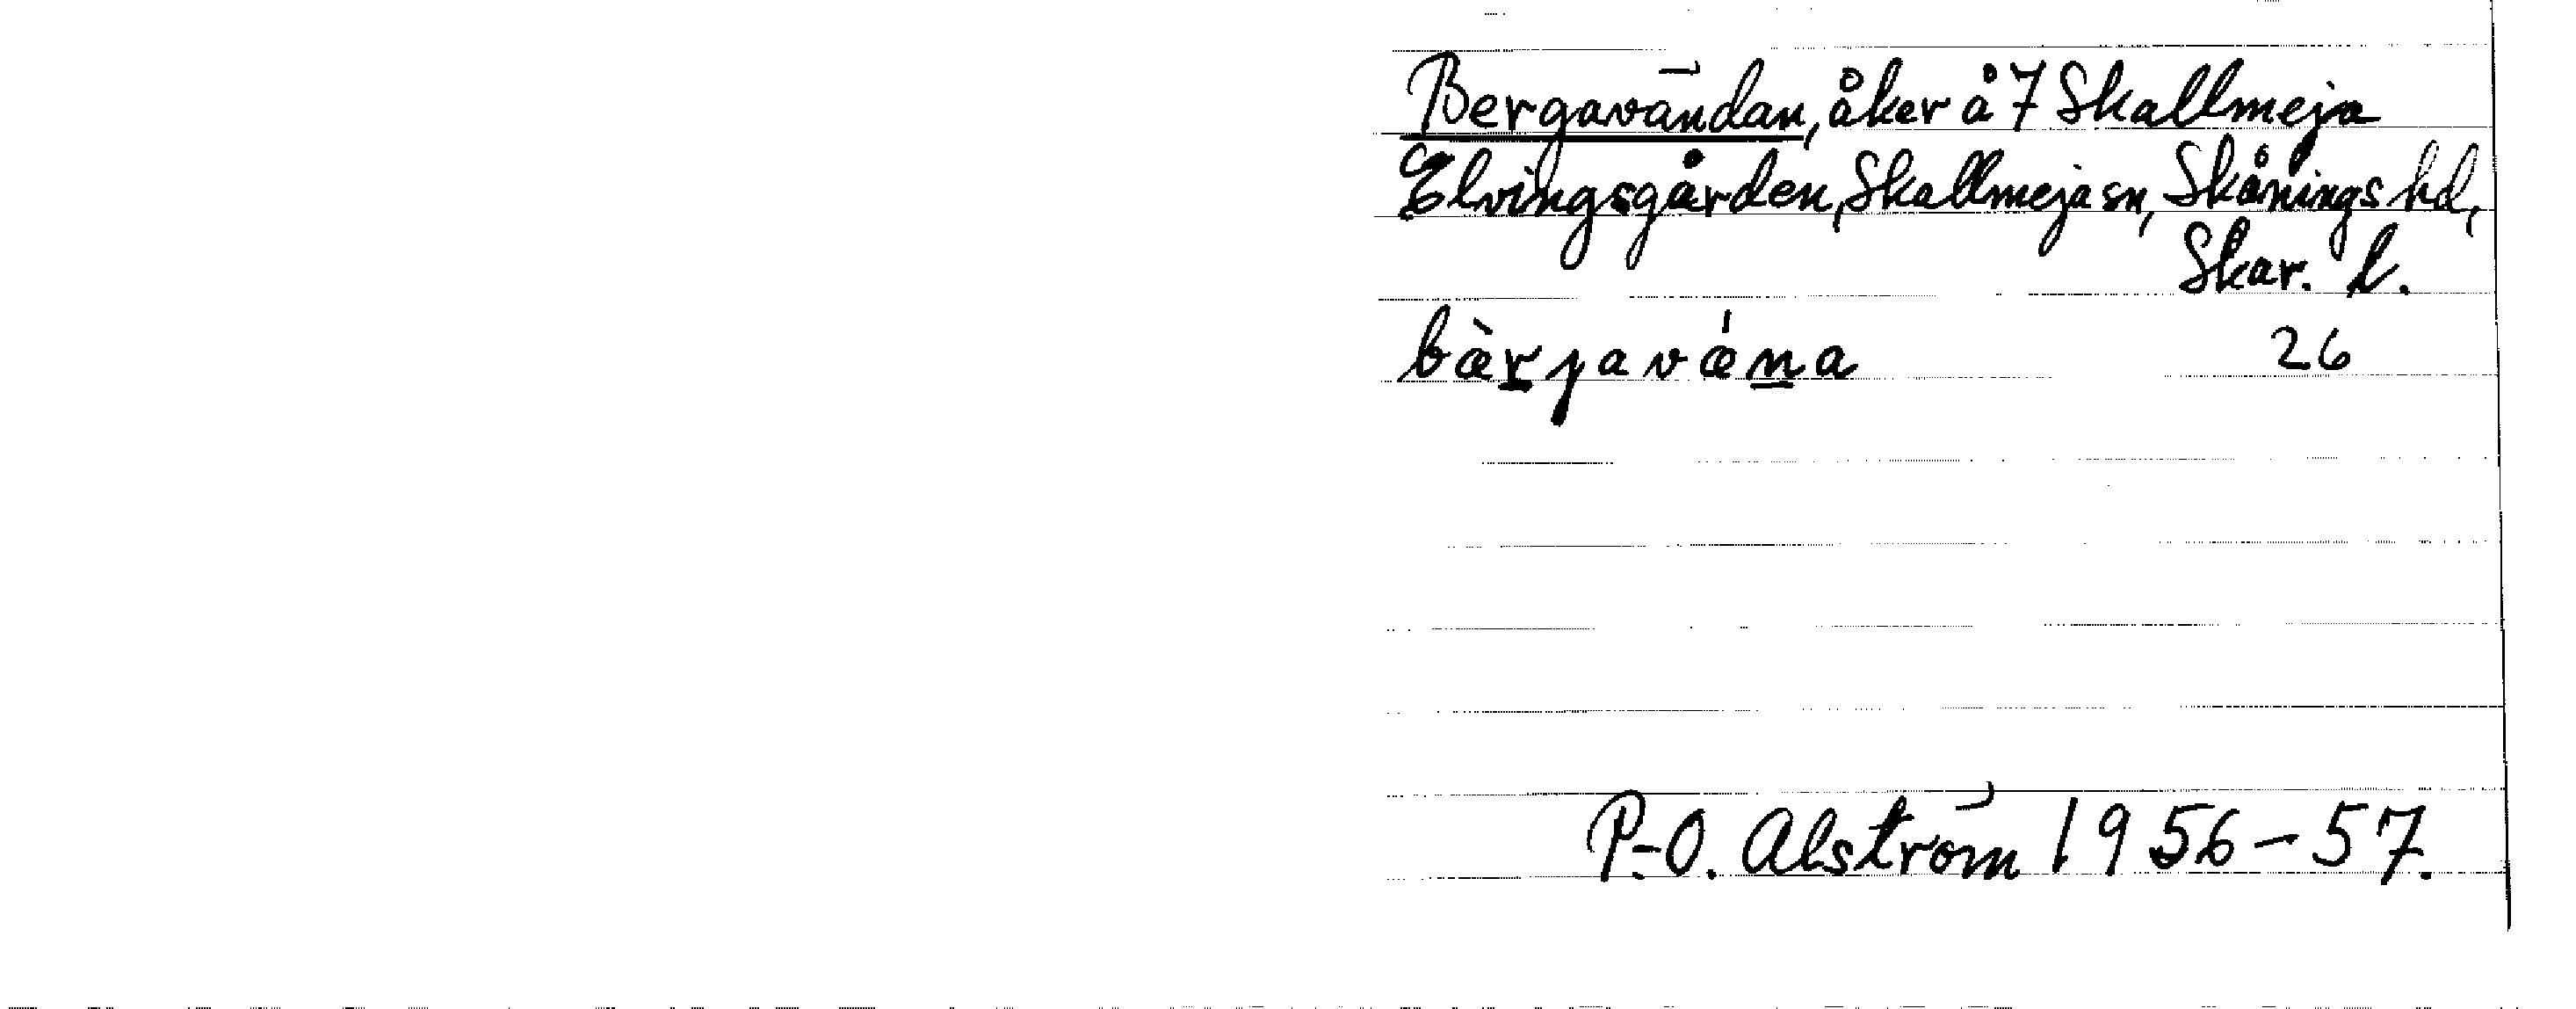 Bergavändan, åker å 7 Skallmeja
Elvingsgården, Skallmeja sn, Skånings hd,
Skar. l.
bæ̀r̠javǽn̠a 26
P-O. Alström 1956-57.